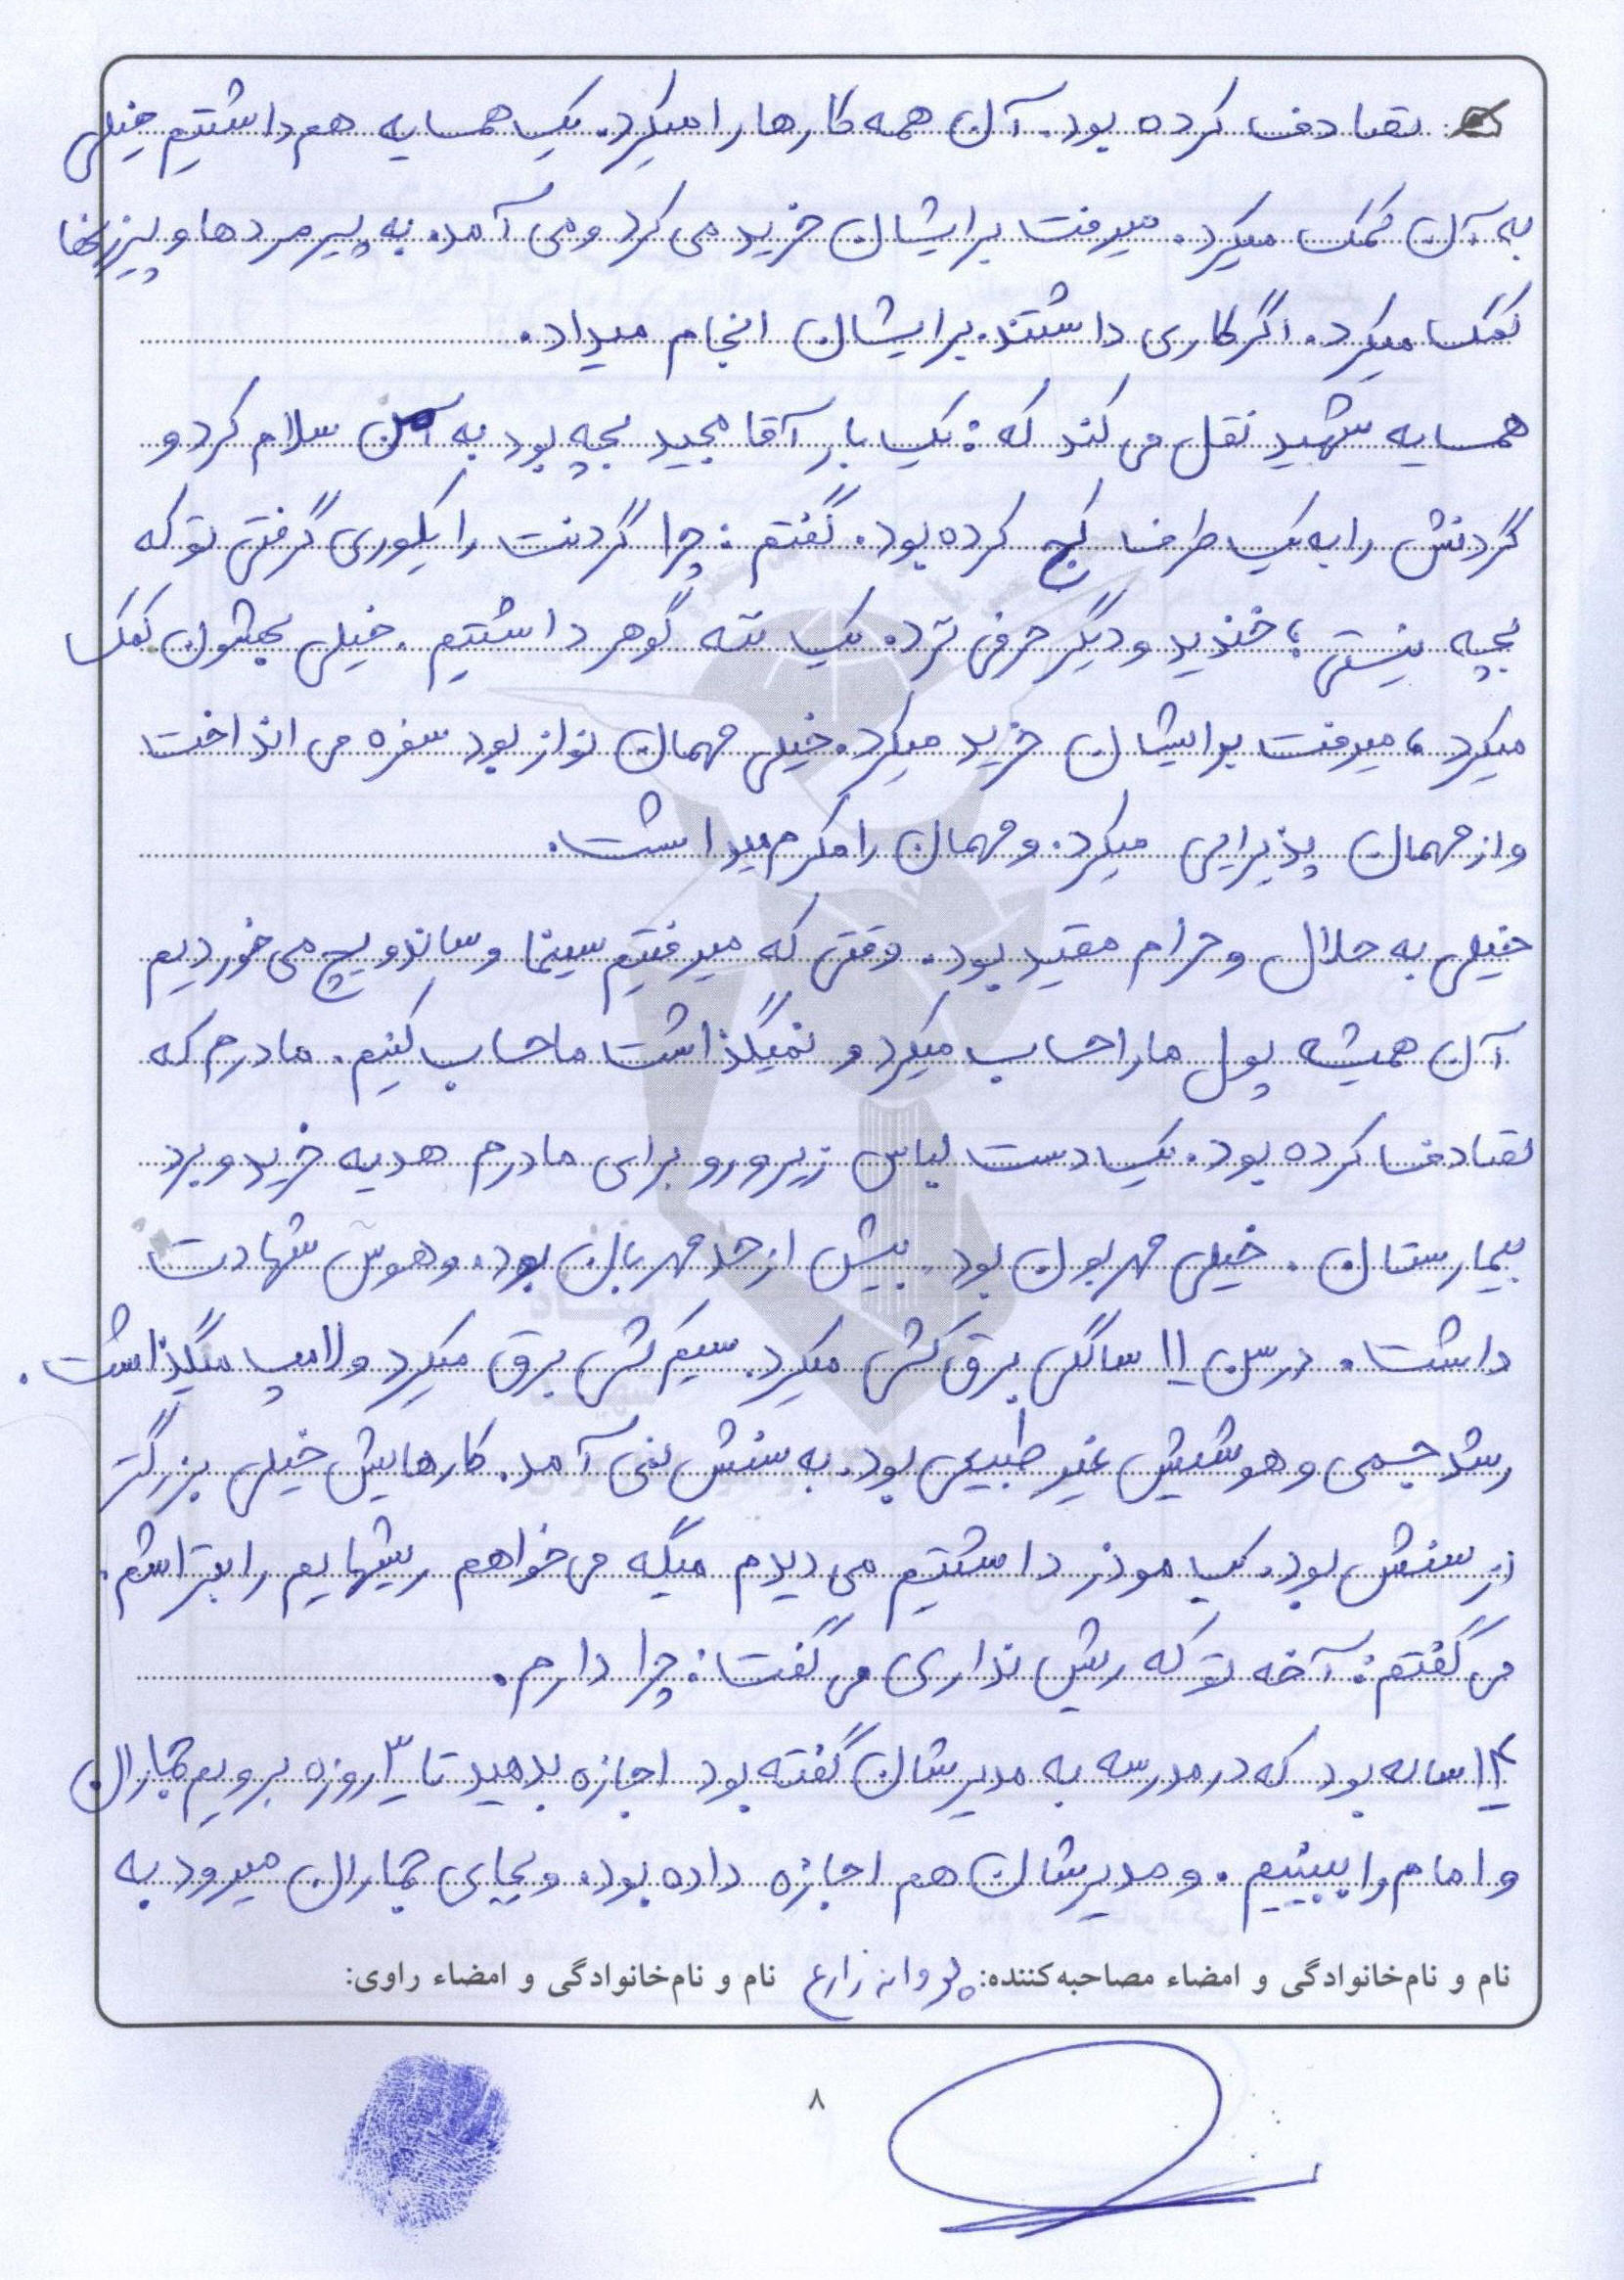 تصادف کرده بود. آن همه کارها را میکرد. یک همسایه هم داشتیم خیلی
به آن کمک میکرد. میرفت برایشان خرید می کرد و می آمد. به پیرمردها و پیرزنها
کمک میکرد. اگر کاری داشتند. برایشان انجام میداد.
همسایه شهید نقل می کند که: یک بار آقا مجید بچه بود به من سلام کرد و
گردنش را به یک طرف کج کرده بود. گفتم: چرا گردنت را یکوری گرفتی تو که
بچه نیستی؛ خندید و دیگر حرفی نزد. یک ننه گوهر داشتیم. خیلی بهشون کمک
میکرد، میرفت برایشان خرید میکرد. خیلی مهمان نواز بود سفره می انداخت
و از مهمان پذیرایی میکرد. و مهمان را مکرم میداشت.
خیلی به حلال و حرام مقید بود. وقتی که میرفتیم سینما و ساندویچ می خوردیم
آن همیشه پول ما را حساب میکرد و نمیگذاشت ما حساب کنیم. مادرم که
تصادف کرده بود. یکدست لباس زیر و رو برای مادرم هدیه خرید و برد
بیمارستان. خیلی مهربون بود. بیش از حد مهربان بود. و هوس شهادت
داشت. در سن ۱۱ سالگی برق کشی میکرد. سیم کشی برق میکرد و لامپ میگذاشت.
رشد جسمی و هوشیش غیر طبیعی بود. به سنش نمی آمد. کارهایش خیلی بزرگتر
از سنش بود. یک موذر داشتیم می دیدم میگه می خواهم ریشهایم را بتراشم.
می گفتم: آخه تو که ریش نداری می گفت: چرا دارم.
۱۴ ساله بود که در مدرسه به مدیرشان گفته بود اجازه بدهید تا ۳ روزه برویم جماران
و امام را ببینیم. و مدیرشان هم اجازه داده بود. و بجای جماران میرود به
نام و نام‌خانوادگی و امضاء مصاحبه‌کننده: پروانه زارع نام و نام‌خانوادگی و امضاء راوی:
۸